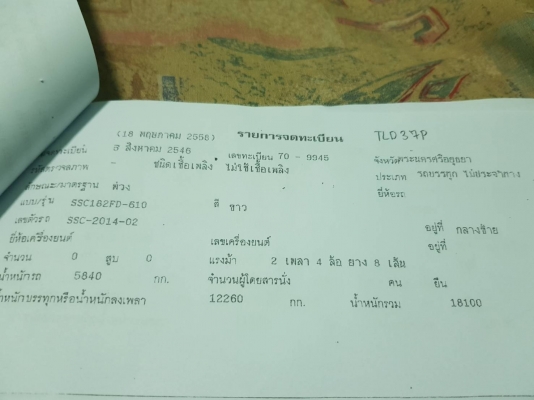 (18 พฤษภาคม 2558) รายการจดทะเบียน TLD37P
3 สิงหาคม 2546 เลขทะเบียน 70 - 9946 จังหวัดพระนครศรีอยุธยา
- ชนิดเชื้อเพลิง ไม่ใช้เชื้อเพลิง ประเภท รถบรรทุก ไม่ประจำทาง
ลักษณะ/มาตรฐาน พ่วง ยี่ห้อรถ
แบบ/รุ่น SSC182FD-610 สี ขาว
เลขตัวรถ SSC-2014-02 อยู่ที่ กลางซ้าย
ยี่ห้อเครื่องยนต์ เลขเครื่องยนต์ อยู่ที่
จำนวน 0 สูบ 0 แรงม้า 2 เพลา 4 ล้อ ยาง 8 เส้น
น้ำหนักรถ 5840 กก. จำนวนผู้โดยสารนั่ง คน ยืน
น้ำหนักบรรทุกหรือน้ำหนักลงเพลา 12260 กก. น้ำหนักรวม 18100